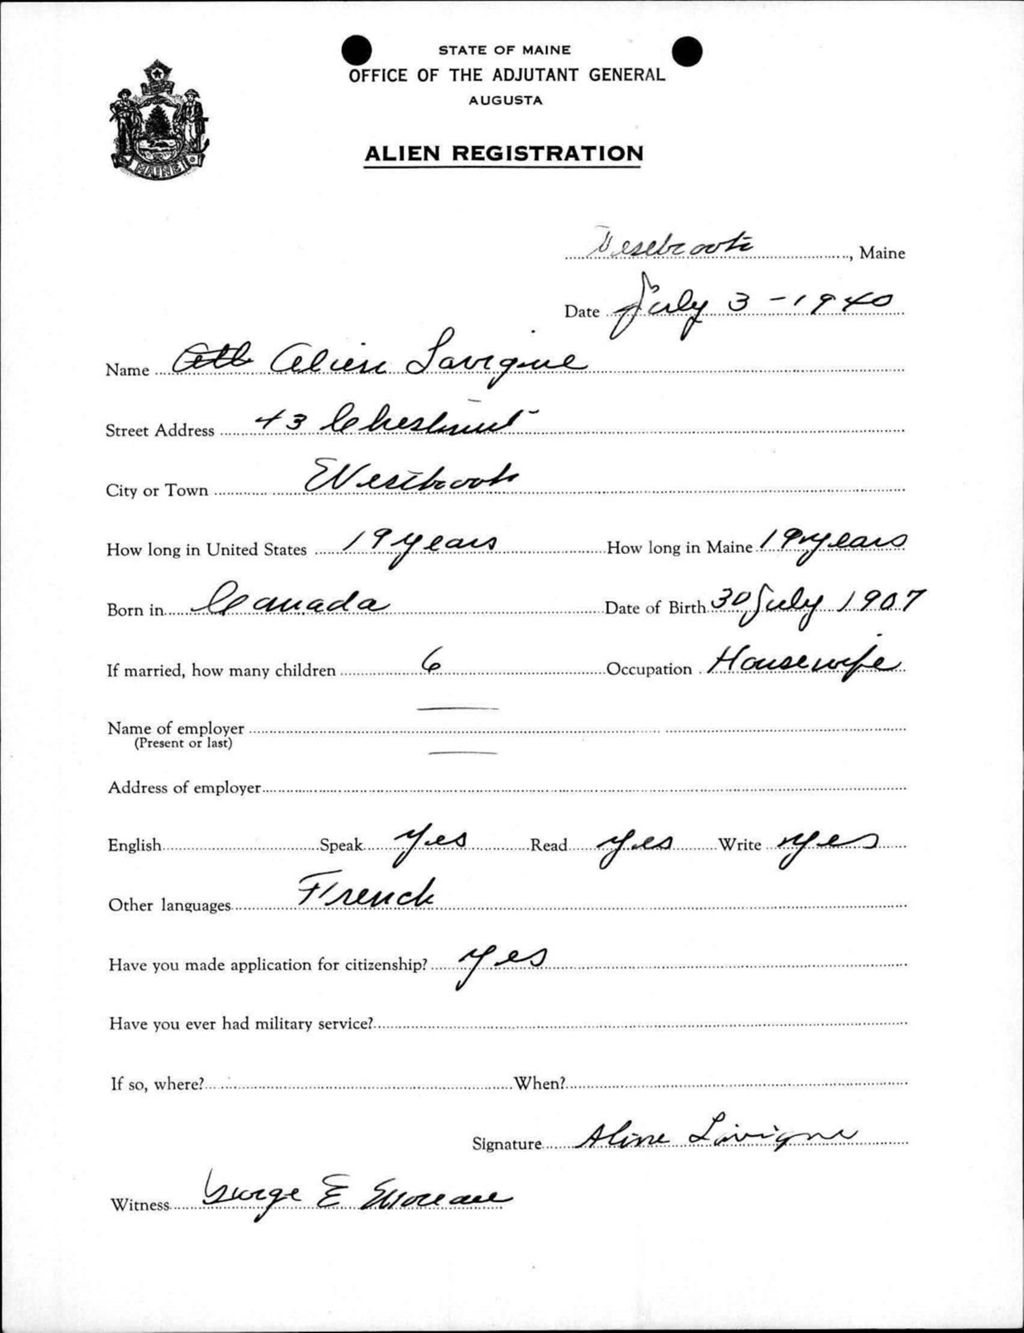 STATE OF MAINE
OFFICE OF THE ADJUTANT GENERAL
AUGUSTA
ALIEN REGISTRATION
MAINE
Westbrook, Maine
Date July 3-1940
Name Alien Lavigne
Street Address 43 Chestnut
City or Town Westbrook
How long in United States 19 years How long in Maine 19 years
Born in Canada Date of Birth 30 July 1907
If married, how many children 6 Occupation Housewife
Name of employer
(Present or last)
Address of employer
English Speak yes Read yes Write yes
Other languages French
Have you made application for citizenship? yes
Have you ever had military service?
If so, where? When?
Signature Aline Lavigne
Witness George E Moreau